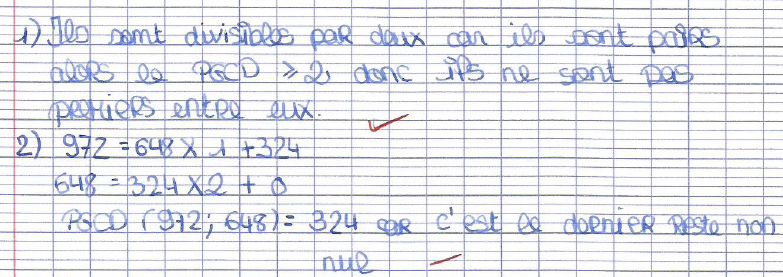 1) Ils sont divisibles par deux car ils sont paires
alors le PGCD ⩾ 2, donc ils ne sont pas
premiers entre eux.
2) 972 = 648 x 1 + 324
648 = 324 x 2 + 0
PGCD (972; 648) = 324 car c'est le dernier reste non
nul